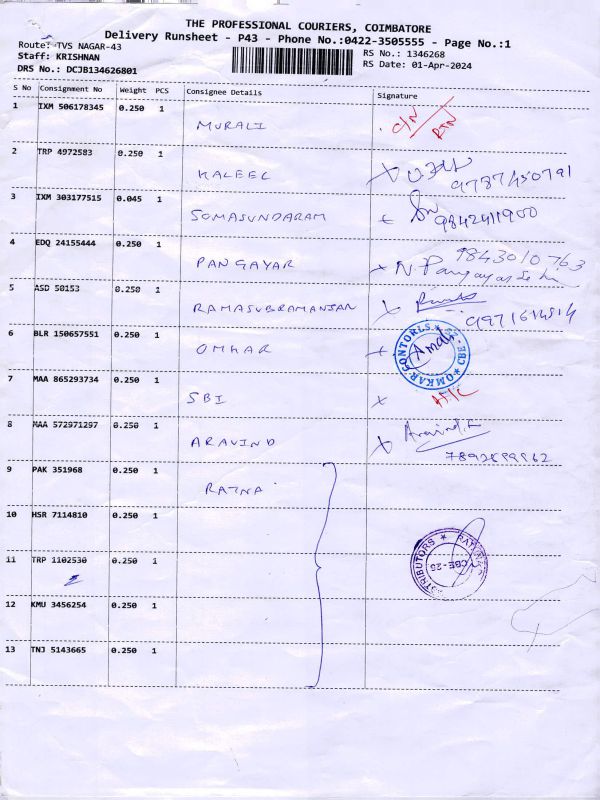 THE PROFESSIONAL COURIERS, COIMBATORE
Delivery Runsheet - P43 - Phone No.:0422-3505555 - Page No.:1
Route: TVS NAGAR-43
RS No.: 1346268
Staff: KRISHNAN
RS Date: 01-Apr-2024
DRS No.: DCJB134626801
S No Consignment No Weight PCS Consignee Details Signature
1 IXM 506178345 0.250 1 MURALI
2 TRP 4972583 0.250 1 KALEEL
9787450791
3 IXM 303177515 0.045 1 SOMASUNDARAM
9842411900
4 EDQ 24155444 0.250 1 PANGAYAR
9843010763
5 ASD 50153 0.250 1 RAMASUBRAMANIAN
6 BLR 150657551 0.250 1 OMKAR
OMKAR CONTORLS CBE
Amali
7 MAA 865293734 0.250 1 SBI
8 MAA 572971297 0.250 1 ARAVIND
Aravind
9 PAK 351968 0.250 1 RATNA
10 HSR 7114810 0.250 1
11 TRP 1102530 0.250 1
CBE-25
12 KMU 3456254 0.250 1
13 TNJ 5143665 0.250 1